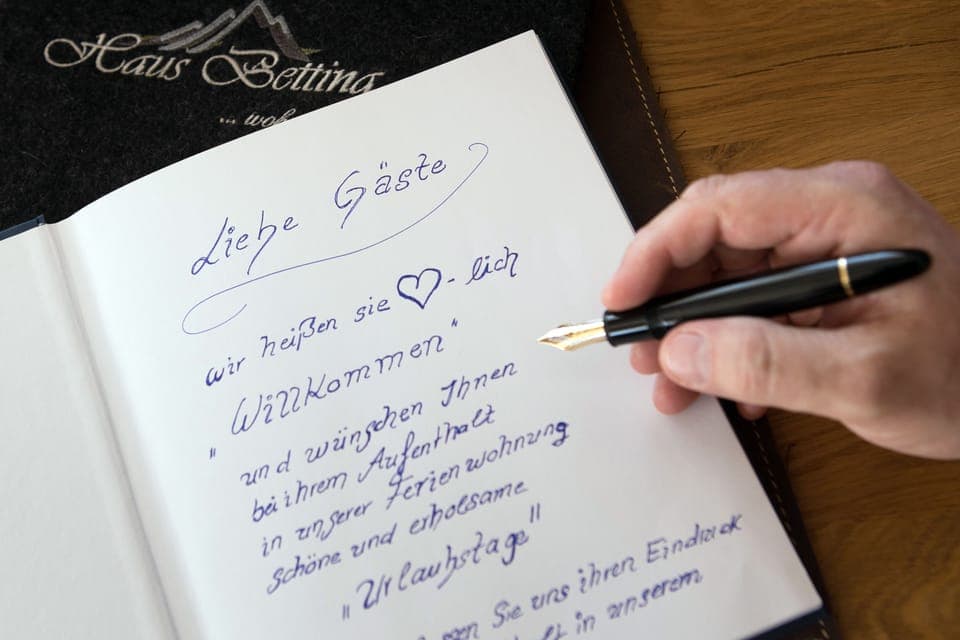 Haus Betting
...
Liebe Gäste
wir heißen sie ♡-lich
„Willkommen“
und wünschen Ihnen
bei ihrem Aufenthalt
in unserer Ferienwohnung
schöne und erholsame
„Urlaubstage“
Sie uns ihren Eindruck
in unserem